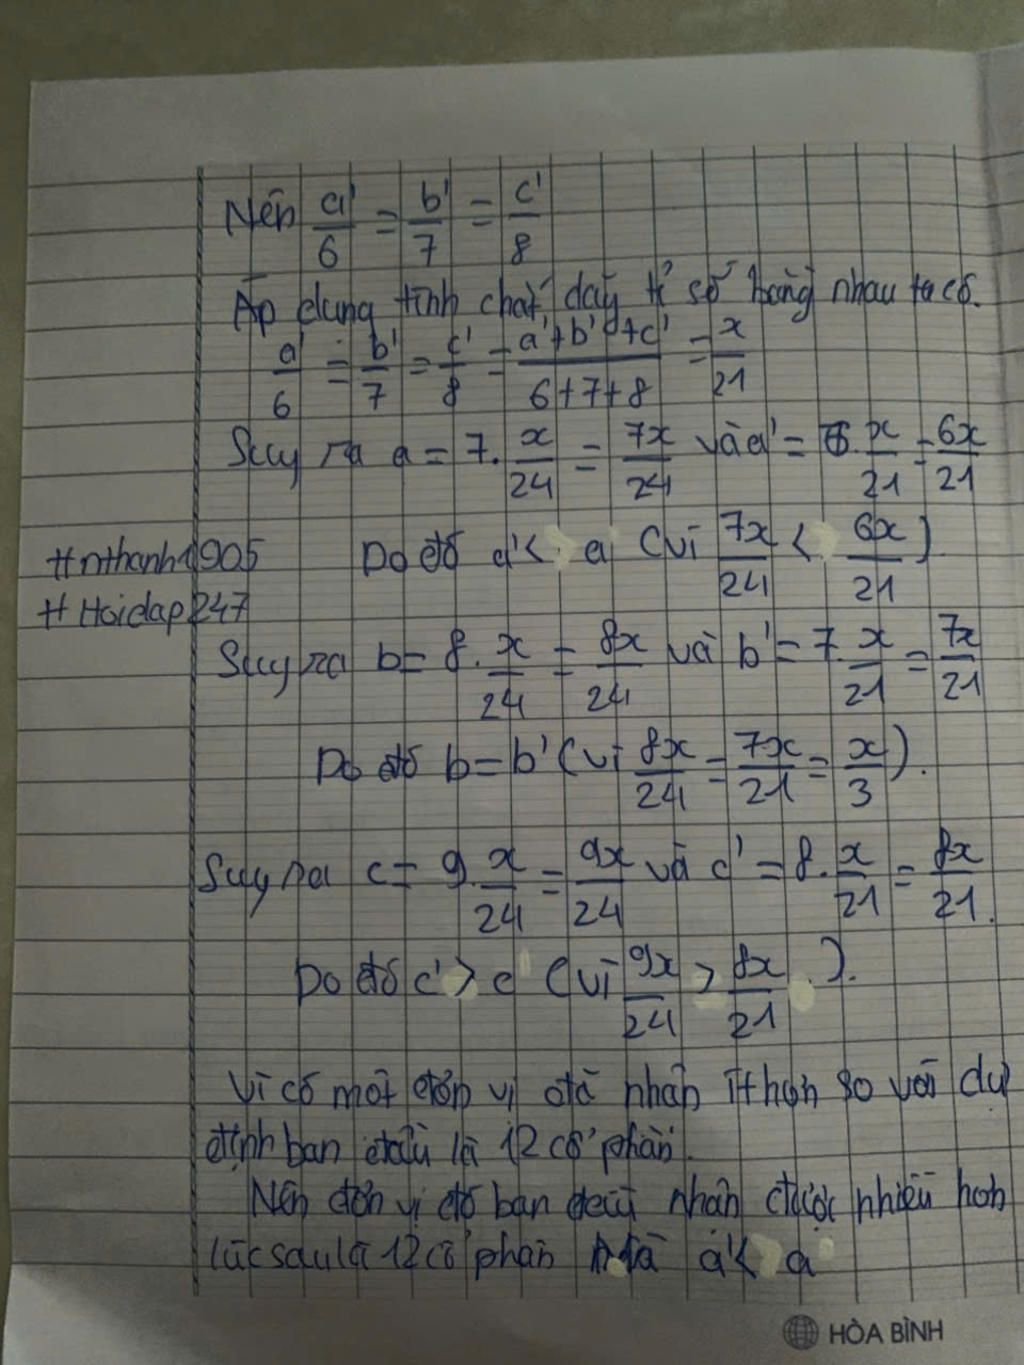 Nên a'/6 = b'/7 = c'/8
Áp dụng tính chất dãy tỉ số bằng nhau ta có.
a'/6 = b'/7 = c'/8 = (a'+b'+c')/(6+7+8) = x/21
Suy ra a = 7. x/24 = 7x/24 và a' = 6. x/21 = 6x/21
#nthanh1905 Do đó a' < a (vì 7x/24 < 6x/21)
#Hoidap247
Suy ra b = 8. x/24 = 8x/24 và b' = 7. x/21 = 7x/21
Do đó b = b' (vì 8x/24 = 7x/21 = x/3).
Suy ra c = 9. x/24 = 9x/24 và c' = 8. x/21 = 8x/21.
Do đó c' > c (vì 9x/24 > 8x/21).
Vì có một đơn vị đã nhận ít hơn so với dự
định ban đầu là 12 cổ phần.
Nên đơn vị đó ban đầu nhận được nhiều hơn
lúc sau là 12 cổ phần mà a' < a
HÒA BÌNH